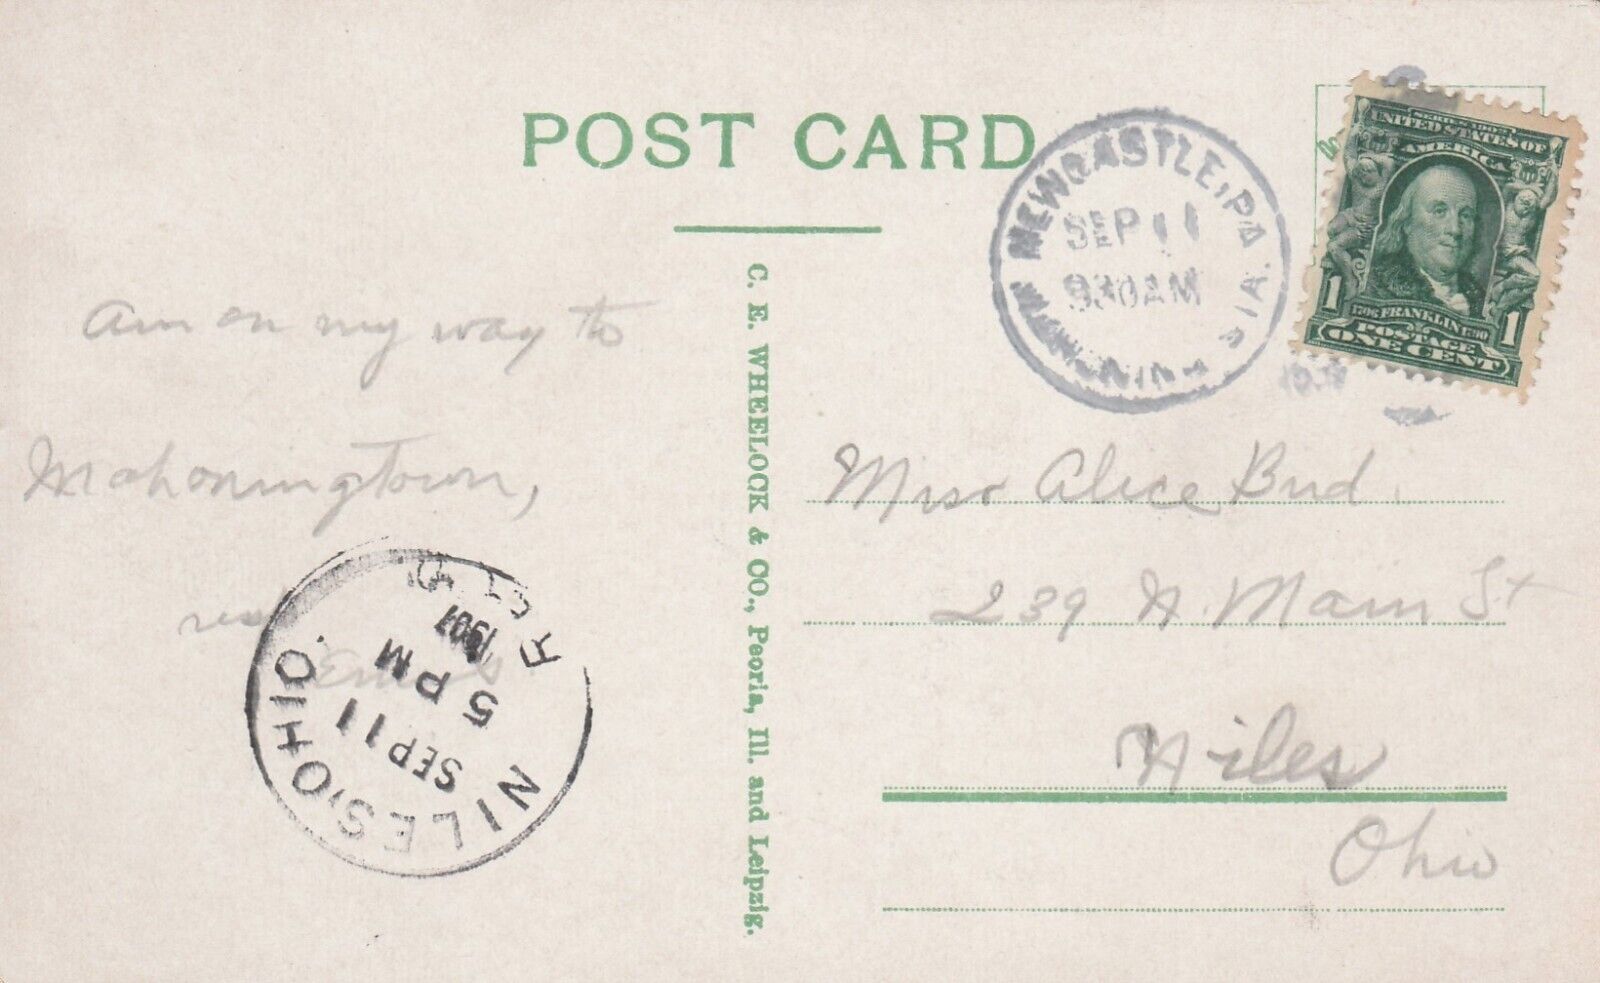 POST CARD
NEWCASTLE, PA
SEP 11
930AM
SERIES 1902
UNITED STATES OF
AMERICA
1 1
1706 FRANKLIN 1790
POSTAGE
ONE CENT
Am on my way to
Mahoningtown,
NILES, OHIO.
SEP 11
5 PM
1907
REC'D
C. E. WHEELOCK & CO., Peoria, Ill. and Leipzig.
Miss Alice Bird.
239 N. Main St
Niles
Ohio